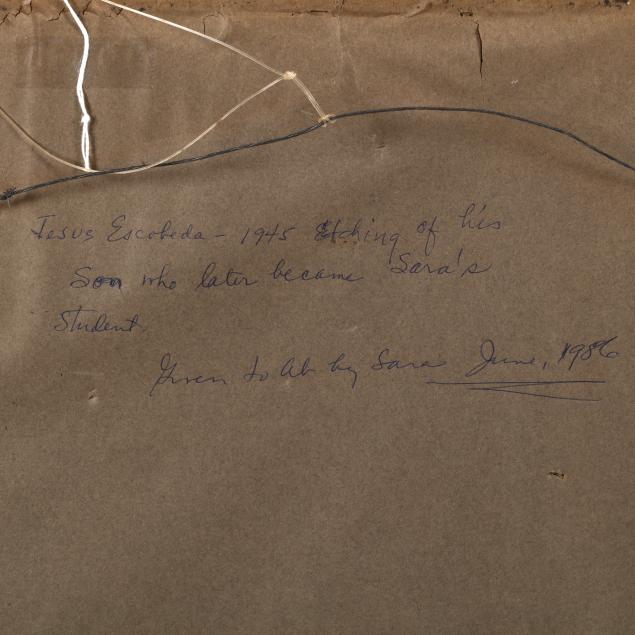 Jesus Escobeda - 1945 Etching of his
Son who later became Sara's
Student
Given to Ab by Sara June, 1986